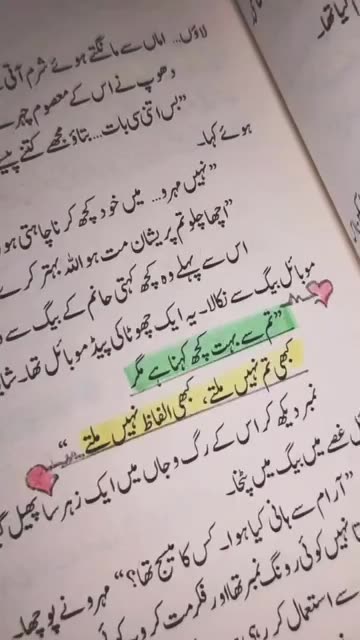 کیا تھا۔
لاؤں... اماں سے مانگتے ہوئے شرم آتی
دھوپ نے اس کے معصوم چہرے
"بس اتنی سی بات... بتاؤ مجھے کتنے
ہوئے کہا۔
"نہیں مہرو... میں خود کچھ کرنا چاہتی
"اچھا چلو تم پریشان مت ہو اللہ بہتر کرے
اس سے پہلے وہ کچھ کہتی حانم کے بیگ سے
موبائل بیگ سے نکالا۔ یہ ایک چھوٹا کی پیڈ موبائل تھا۔
"تم سے بہت کچھ کہنا ہے مگر
کبھی تم نہیں ملتے، کبھی الفاظ نہیں ملتے..."
نمبر دیکھ کر اس کے رگ و جاں میں ایک زہر سا پھیل
غصے میں بیگ میں پٹخا۔
"آرام سے ہانی کیا ہوا۔ کس کا میسج تھا؟" مہرو نے پوچھا۔
نہیں کوئی رونگ نمبر تھا اور فکر مت کرو
سے استعمال کر رہی